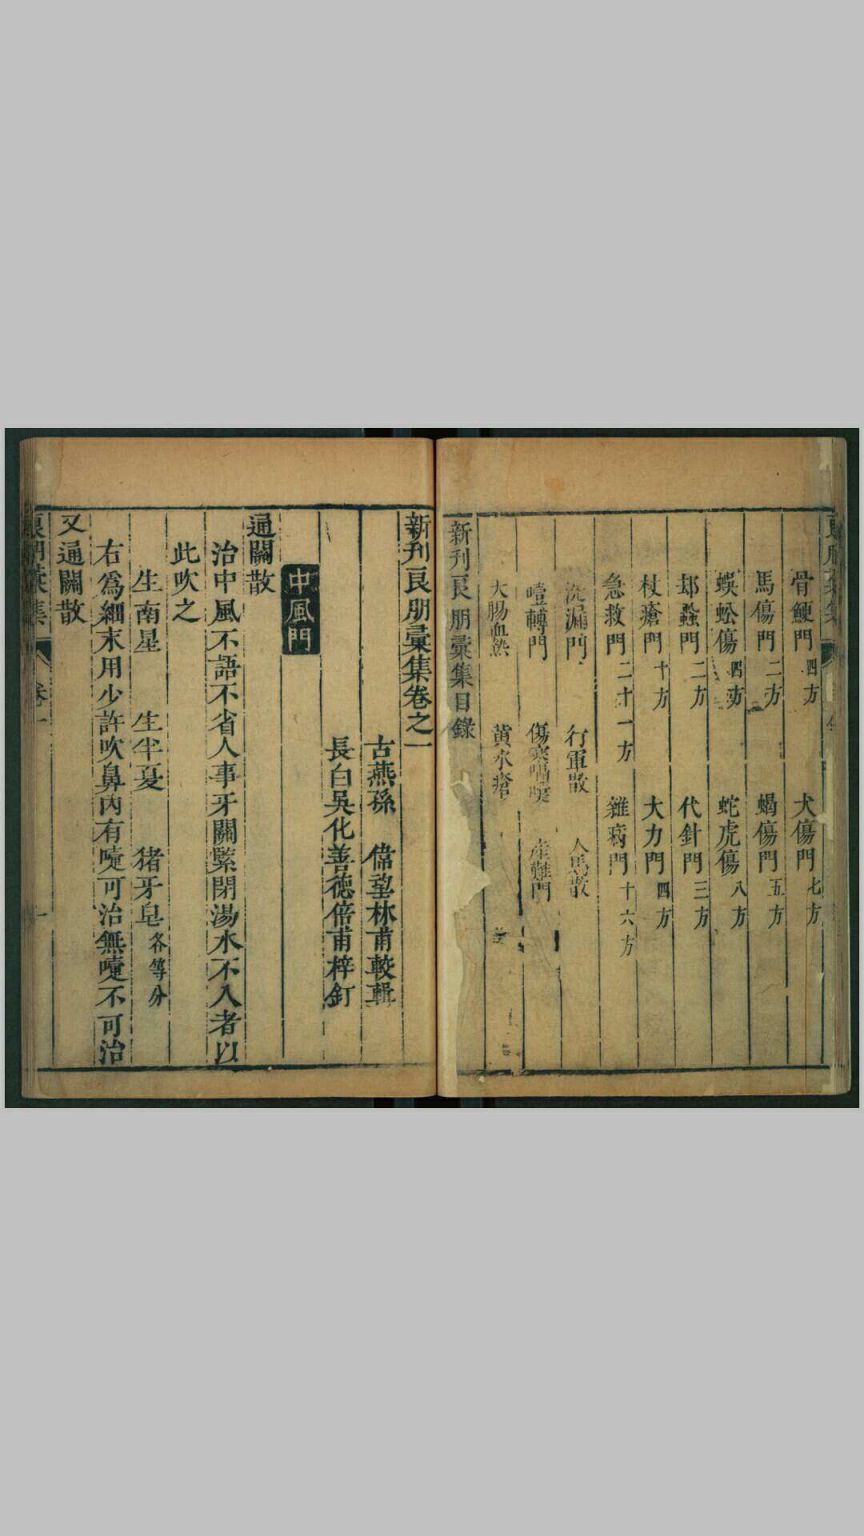 骨鯁門四方 犬傷門七方
馬傷門二方 蝎傷門五方
蜈蚣傷四方 蛇虎傷八方
二方 代針門三方
杖瘡門十方 大力門四方
急救門二十一方 雜病門十六方
洗漏門 行軍散 人馬散
噎轉門 傷寒 產難門
大腸血 黃水瘡
新刊良朋彙集目錄
新刊良朋彙集卷之一
古燕孫 偉望林甫較輯
長白吳化善德倍甫梓釘
中風門
通關散
治中風不語不省人事牙關緊閉湯水不入者以
此吹之
生南星 生半夏 猪牙皂各等分
右為細末用少許吹鼻內有嚏可治無嚏不可治
又通關散
良朋彙集 卷一 一